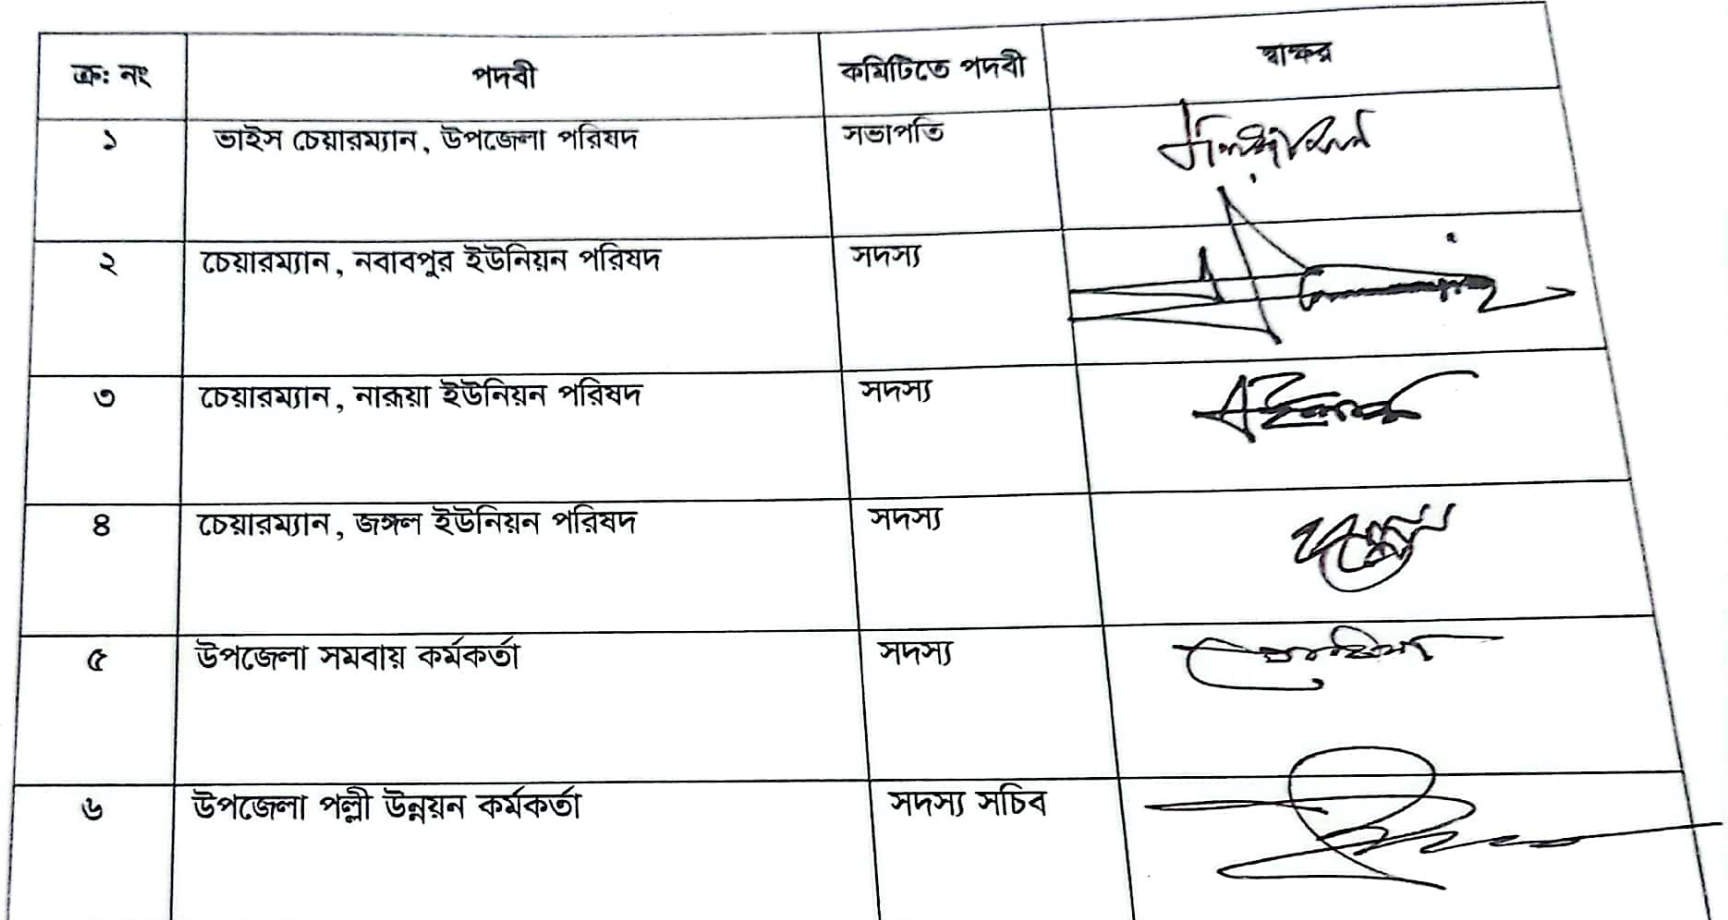 ক্র: নং পদবী কমিটিতে পদবী স্বাক্ষর
১ ভাইস চেয়ারম্যান, উপজেলা পরিষদ সভাপতি
২ চেয়ারম্যান, নবাবপুর ইউনিয়ন পরিষদ সদস্য
৩ চেয়ারম্যান, নারূয়া ইউনিয়ন পরিষদ সদস্য
৪ চেয়ারম্যান, জঙ্গল ইউনিয়ন পরিষদ সদস্য
৫ উপজেলা সমবায় কর্মকর্তা সদস্য
৬ উপজেলা পল্লী উন্নয়ন কর্মকর্তা সদস্য সচিব